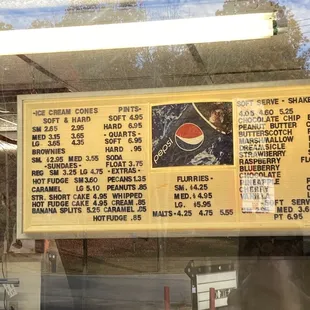 -ICE CREAM CONES
SOFT & HARD
SM 2.65
MED 3.15
LG 3.65
BROWNIES
SM 2.95 MED 3.55
-SUNDAES-
REG SM 3.25 LG 4.75
HOT FUDGE SM 3.60
CARAMEL LG 5.10
STR. SHORT CAKE 4.95
HOT FUDGE CAKE 4.95
BANANA SPLITS 5.25
PINTS-
SOFT 4.95
HARD 6.95
- QUARTS -
SOFT 6.95
HARD .95
SODA
FLOAT 3.75
- EXTRAS -
PECANS 1.35
PEANUTS .85
WHIPPED
CREAM .85
CARAMEL .85
HOT FUDGE .85
PEPSI
FLURRIES -
SM. $4.25
MED. $4.95
LG. $5.95
MALTS - 4.25 4.75 5.55
SOFT SERVE - SHAKE
4.05 4.60 5.25
CHOCOLATE CHIP
PEANUT BUTTER
BUTTERSCOTCH
MARSHMALLOW
DREAMSICLE
STRAWBERRY
RASPBERRY
BLUEBERRY
CHOCOLATE
PINEAPPLE
CHERRY
VANILLA
SOFT SERVE
MED 3.6
PT 6.95